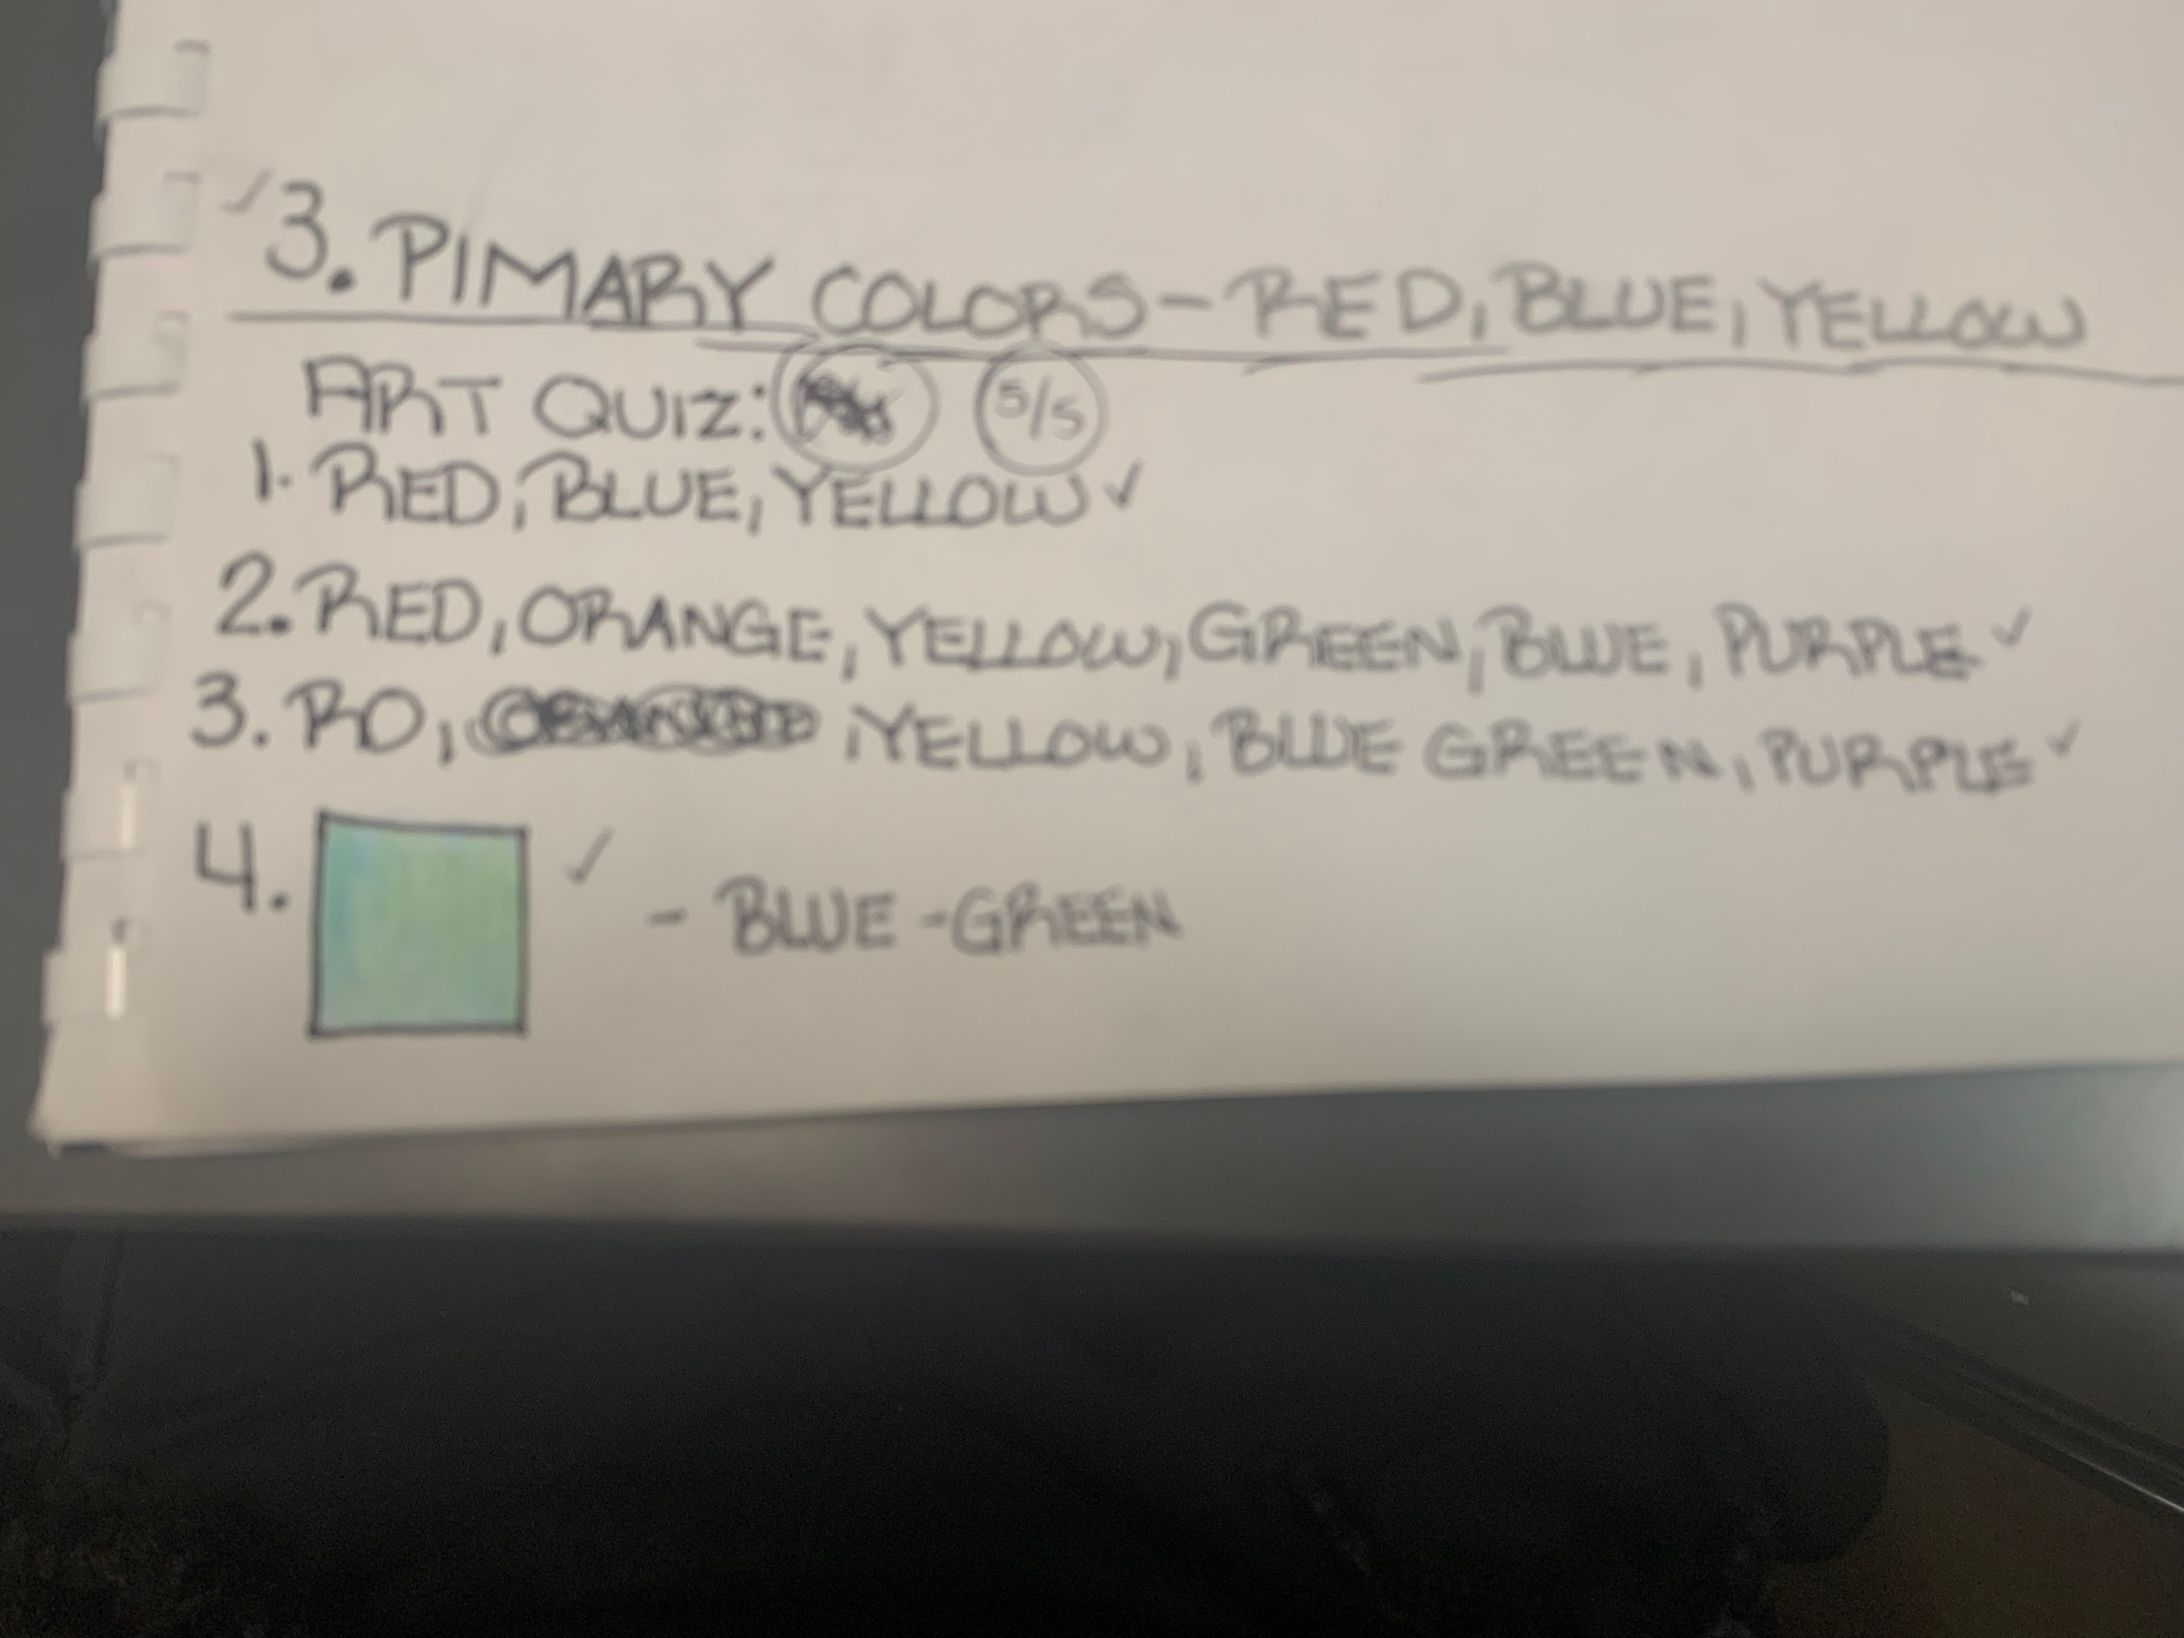 ✓3. PIMARY COLORS - RED, BLUE, YELLOW
ART QUIZ: 5/5
1. RED, BLUE, YELLOW ✓
2. RED, ORANGE, YELLOW, GREEN, BLUE, PURPLE ✓
3. RO, YELLOW, BLUE GREEN, PURPLE ✓
4. ✓ - BLUE-GREEN